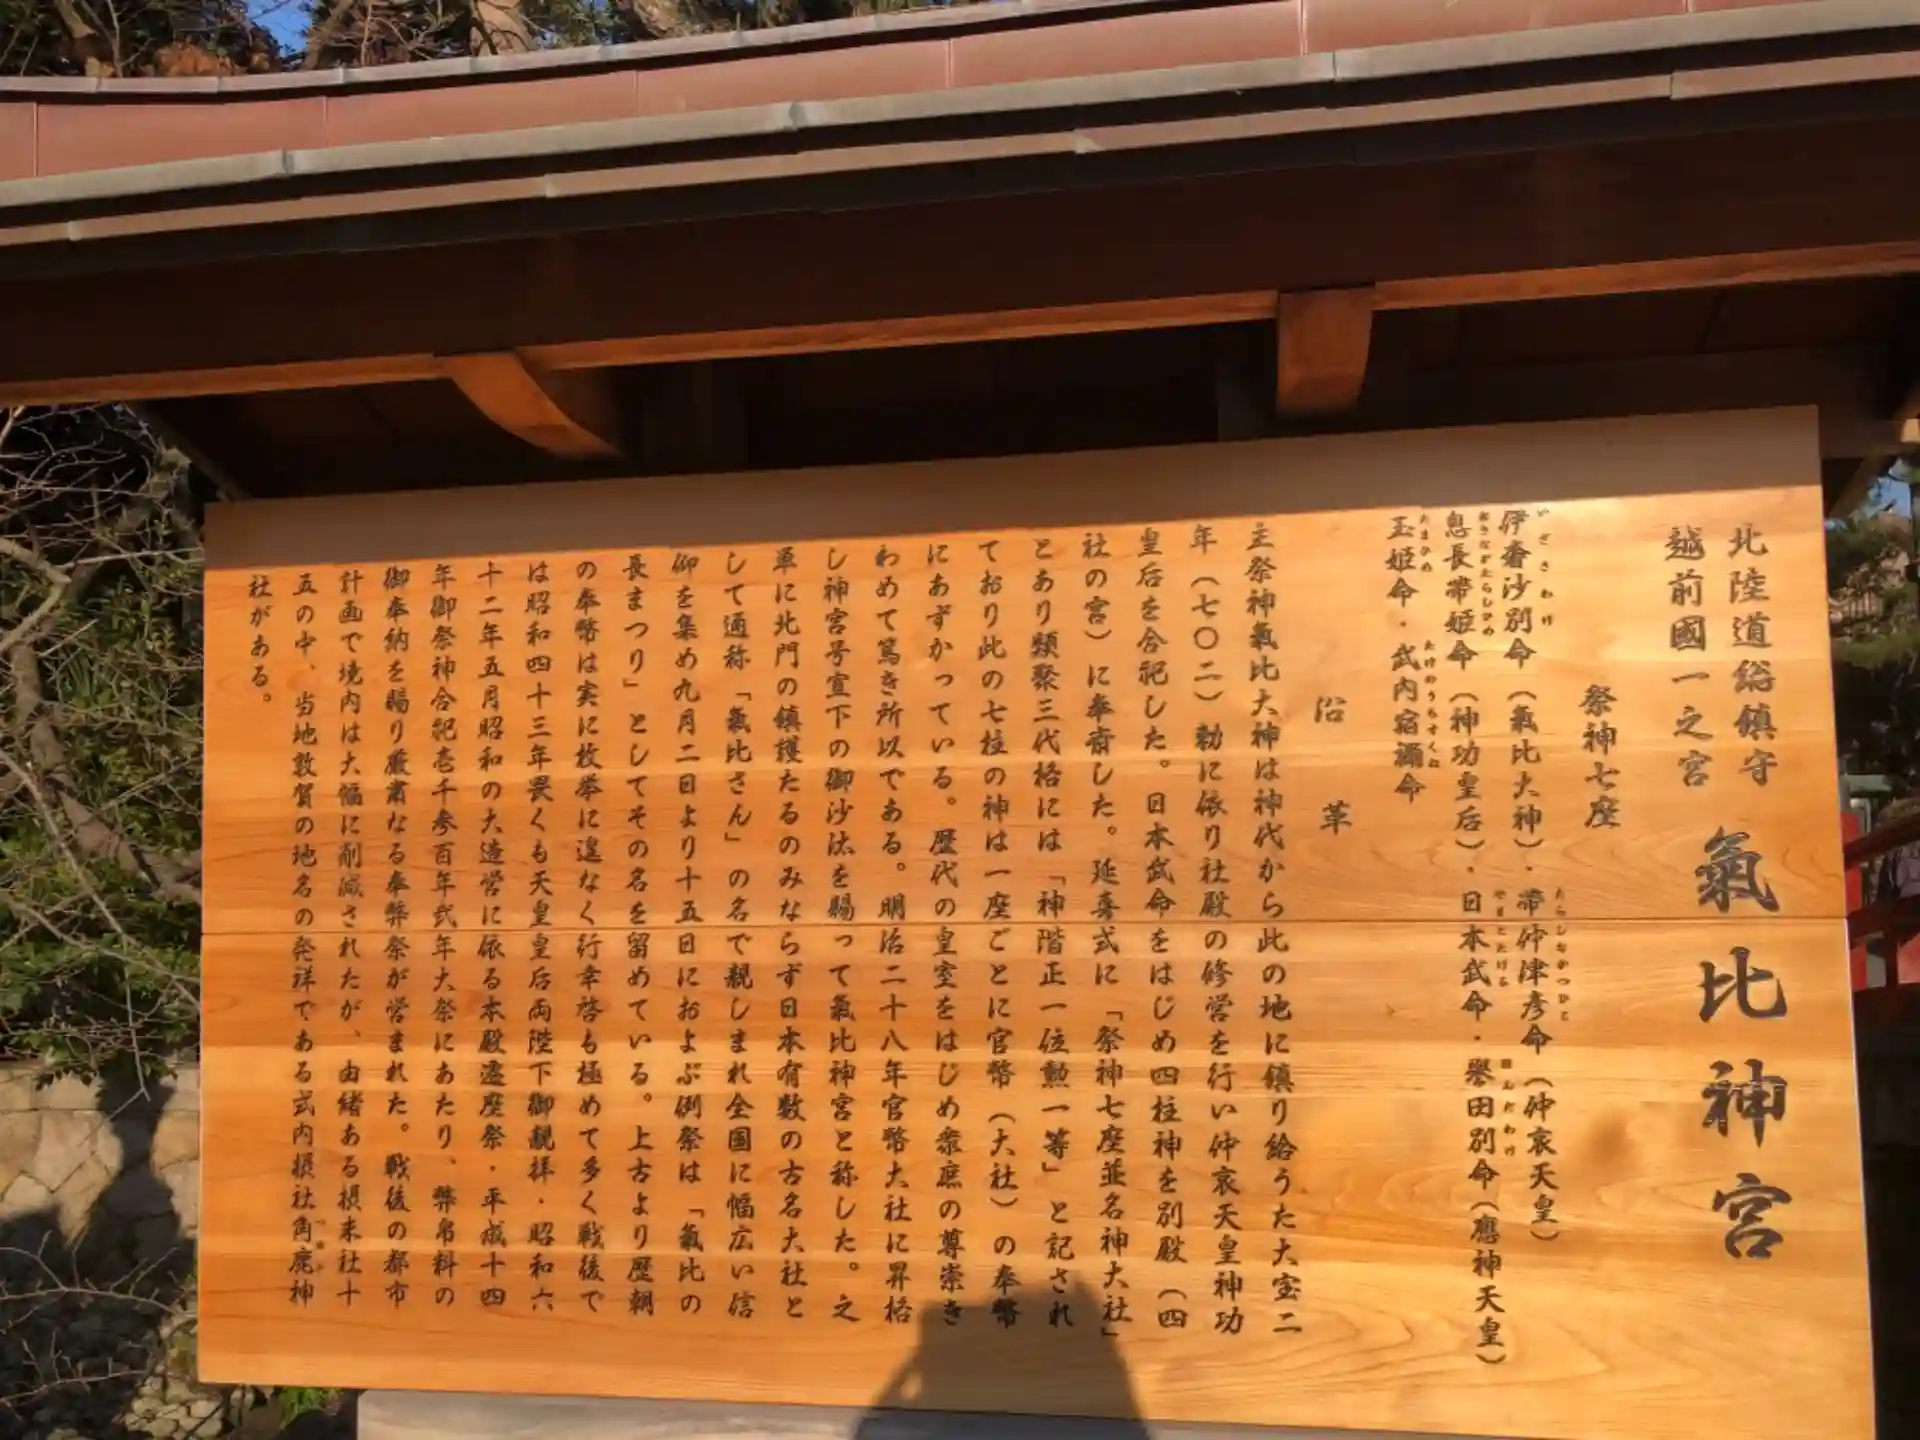 北陸道総鎮守
越前國一之宮
氣比神宮
祭神七座
伊奢沙別命（氣比大神）・帯仲津彦命（仲哀天皇）
いざさわけ
たらしなかつひこ
息長帯姫命（神功皇后）・日本武命・譽田別命（應神天皇）
おきながたらしひめ
やまとたける
ほんだわけ
玉姫命・武内宿禰命
たまひめ
たけのうちすくね
沿革
主祭神氣比大神は神代から此の地に鎮り給うた大宝二
年（七〇二）勅に依り社殿の修営を行い仲哀天皇神功
皇后を合祀した。日本武命をはじめ四柱神を別殿（四
社の宮）に奉齋した。延喜式に「祭神七座並名神大社」
とあり類聚三代格には「神階正一位勲一等」と記され
ており此の七柱の神は一座ごとに官幣（大社）の奉幣
にあずかっている。歴代の皇室をはじめ衆庶の尊崇き
わめて篤き所以である。明治二十八年官幣大社に昇格
し神宮号宣下の御沙汰を賜って氣比神宮と称した。之
単に北門の鎮護たるのみならず日本有数の古名大社と
して通称「氣比さん」の名で親しまれ全国に幅広い信
仰を集め九月二日より十五日におよぶ例祭は「氣比の
長まつり」としてその名を留めている。上古より歴朝
の奉幣は実に枚挙に遑なく行幸啓も極めて多く戦後で
は昭和四十三年畏くも天皇皇后両陛下御親拝・昭和六
十二年五月昭和の大造営に依る本殿遷座祭・平成十四
年御祭神合祀壱千参百年弐年大祭にあたり、幣帛料の
御奉納を賜り厳粛なる奉幣祭が営まれた。戦後の都市
計画で境内は大幅に削減されたが、由緒ある摂末社十
五の中、当地敦賀の地名の発祥である式内摂社角鹿神
つぬが
社がある。